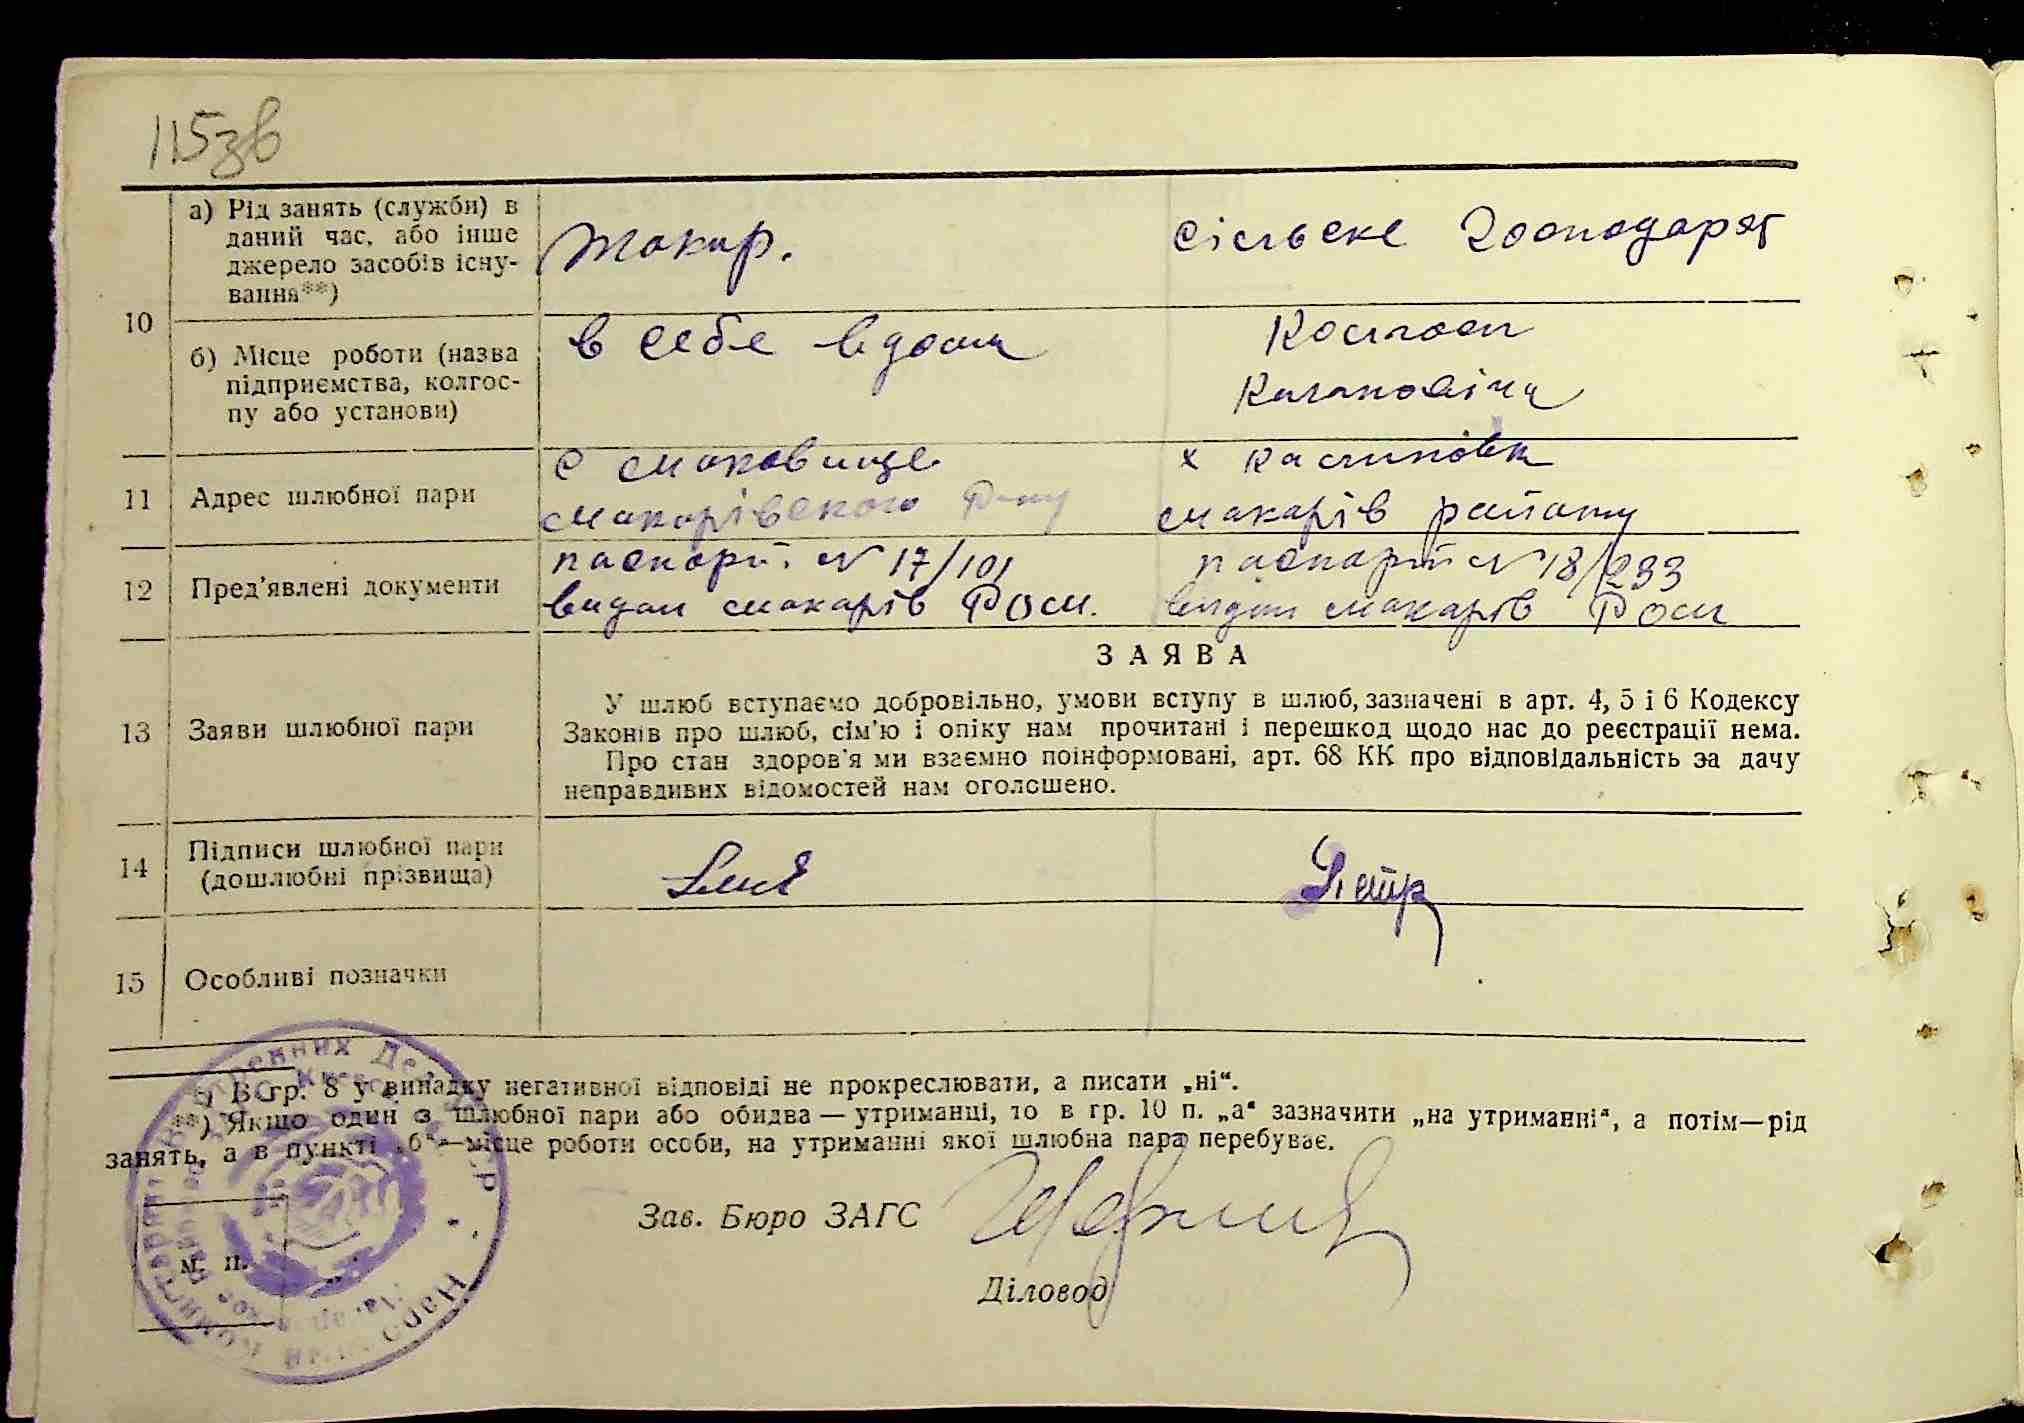 115зв
10
а) Рід занять (служби) в
даний час, або інше
джерело засобів існу-
вання**)
токар.
сільське господарст
б) Місце роботи (назва
підприємства, колгос-
пу або установи)
в себе вдома
Колгосп
Кагановіча
11
Адрес шлюбної пари
с маковище
макарівського Р-ну
х калинівк
макарів району
12
Пред'явлені документи
паспорт. N 17/101
видан макарів РОМ.
паспорт N 18/233
видан макарів РОМ
ЗАЯВА
13
Заяви шлюбної пари
У шлюб вступаємо добровільно, умови вступу в шлюб, зазначені в арт. 4, 5 і 6 Кодексу
Законів про шлюб, сім'ю і опіку нам прочитані і перешкод щодо нас до реєстрації нема.
Про стан здоров'я ми взаємно поінформовані, арт. 68 КК про відповідальність за дачу
неправдивих відомостей нам оголошено.
14
Підписи шлюбної пари
(дошлюбні прізвища)
15
Особливі позначки
*) В гр. 8 у випадку негативної відповіді не прокреслювати, а писати „ні“.
**) Якщо один з шлюбної пари або обидва — утриманці, то в гр. 10 п. „а“ зазначити „на утриманні“, а потім—рід
занять, а в пункті „б“—місце роботи особи, на утриманні якої шлюбна пара перебуває.
Зав. Бюро ЗАГС
м. п.
Діловод